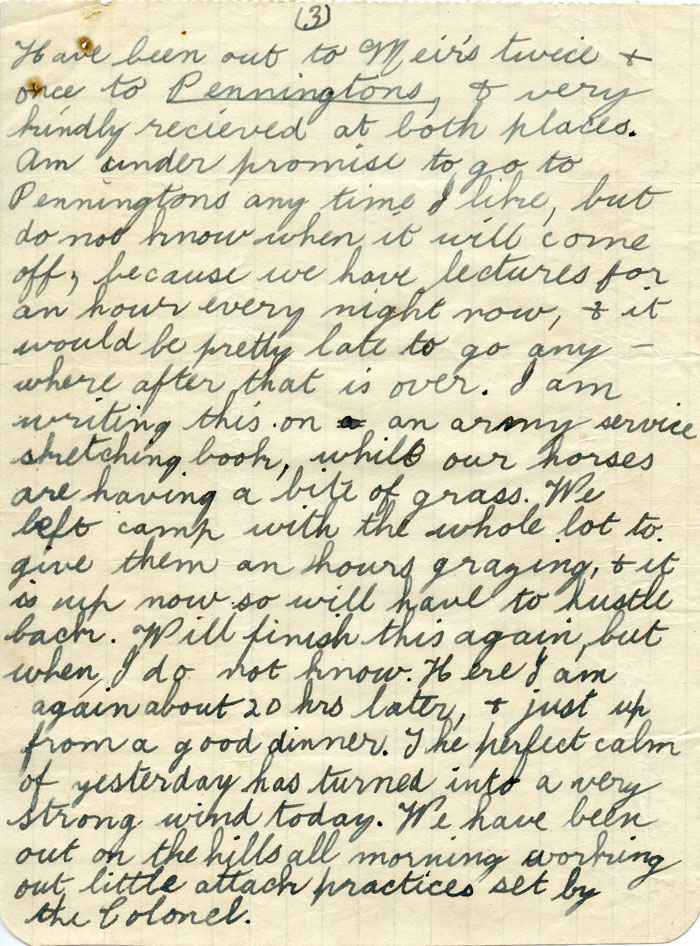 (3)
Have been out to Meirs twice +
once to Penningtons, & very
kindly recieved at both places.
Am under promise to go to
Penningtons any time I like, but
do not know when it will come
off, because we have lectures for
an hour every night now, & it
would be pretty late to go any -
where after that is over. I am
writing this on a an army service
sketching book, while our horses
are having a bite of grass. We
left camp with the whole lot to
give them an hours grazing, & it
is up now so will have to hustle
back. Will finish this again, but
when, I do not know. Here I am
again about 20 hrs later, & just up
from a good dinner. The perfect calm
of yesterday has turned into a very
strong wind today. We have been
out on the hills all morning working
out little attack practices set by
the Colonel.